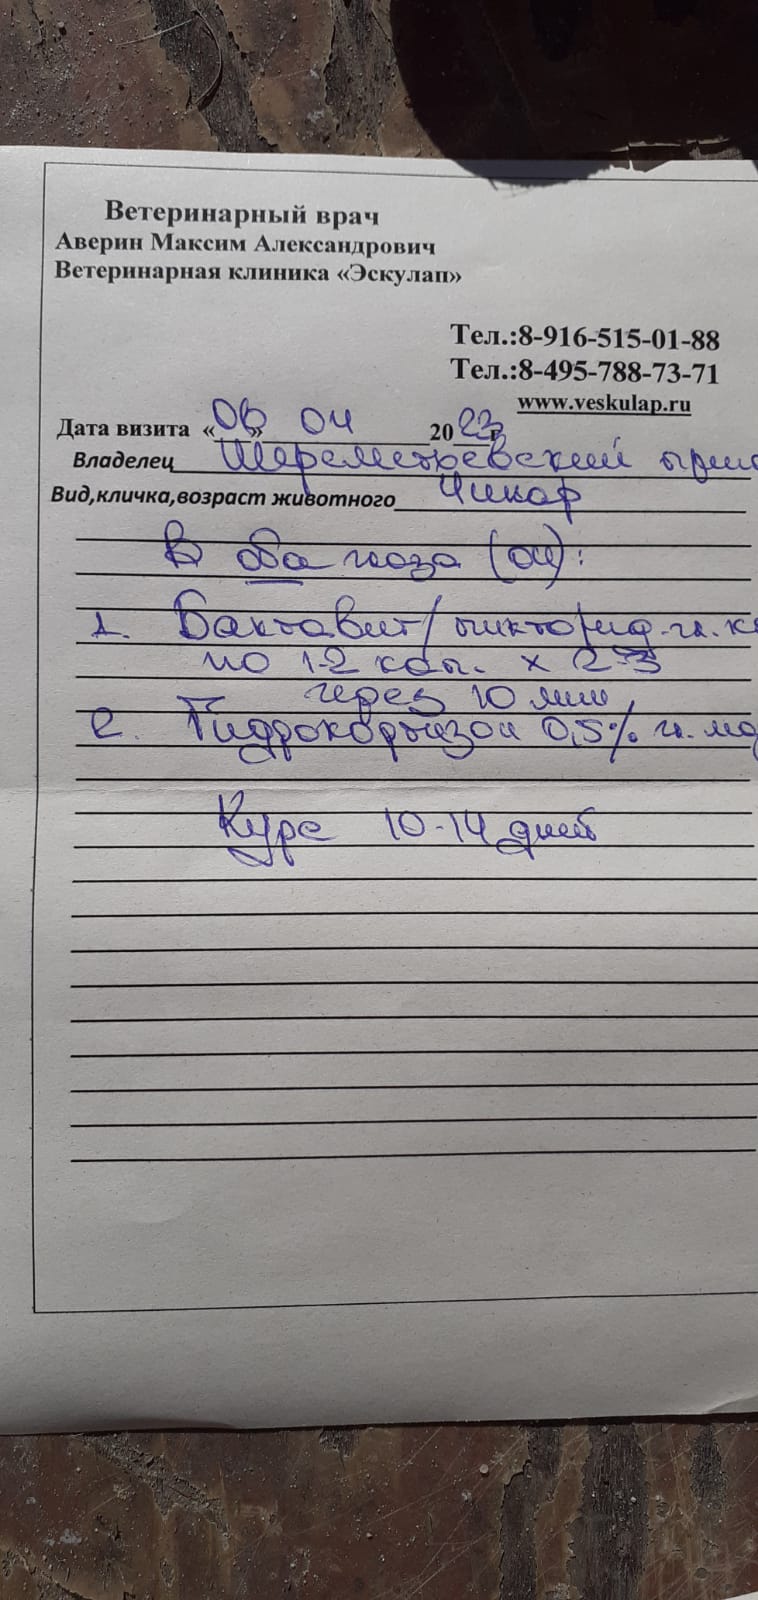 Ветеринарный врач
Аверин Максим Александрович
Ветеринарная клиника «Эскулап»
Тел.:8-916-515-01-88
Тел.:8-495-788-73-71
www.veskulap.ru
Дата визита «06» 04 2023г
Владелец Шереметьевский прию
Вид,кличка,возраст животного Чинар
В оба глаза (ои):
1. Бактавит/ гл. к
по 1-2 кап. х 2-3
через 10 мин
2. Гидрокортизон 0,5% гл. ма
Курс 10-14 дней